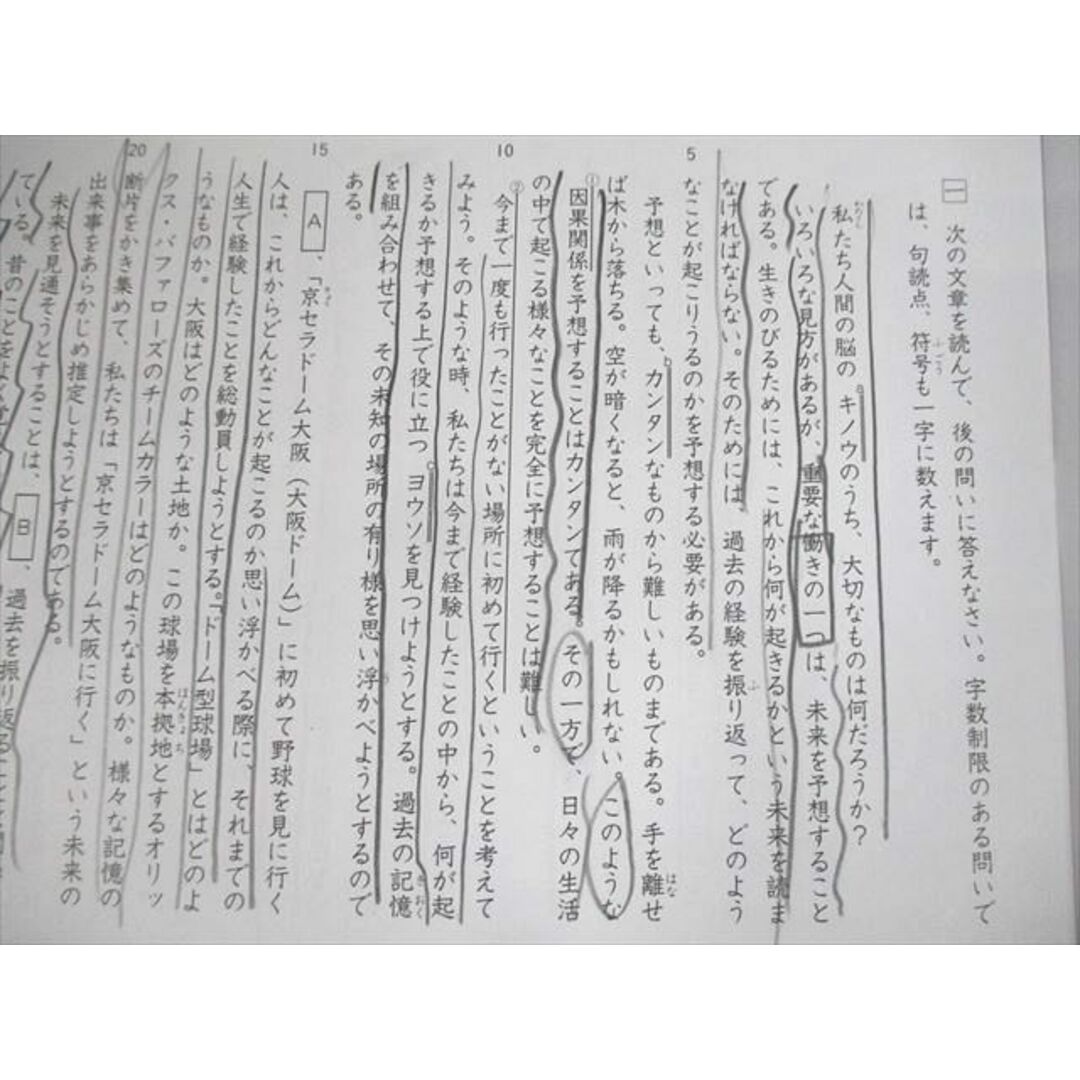 一 次の文章を読んで、後の問いに答えなさい。字数制限のある問いで
は、句読点、符号も一字に数えます。
私たち人間の脳のaキノウのうち、大切なものは何だろうか？
いろいろな見方があるが、重要な働きの一つは、未来を予想すること
である。生きのびるためには、これから何が起きるかという未来を読ま
なければならない。そのためには、過去の経験を振り返って、どのよう
なことが起こりうるのかを予想する必要がある。
予想といっても、bカンタンなものから難しいものまである。手を離せ
ば木から落ちる。空が暗くなると、雨が降るかもしれない。このような
①因果関係を予想することはカンタンである。その一方で、日々の生活
の中で起こる様々なことを完全に予想することは難しい。
②今まで一度も行ったことがない場所に初めて行くということを考えて
みよう。そのような時、私たちは今まで経験したことの中から、何が起
きるか予想する上で役に立つcヨウソを見つけようとする。過去の記憶
を組み合わせて、その未知の場所の有り様を思い浮かべようとするので
ある。
A、「京セラドーム大阪（大阪ドーム）」に初めて野球を見に行く
人は、これからどんなことが起こるのか思い浮かべる際に、それまでの
人生で経験したことを総動員しようとする。「ドーム型球場」とはどのよ
うなものか。大阪はどのような土地か。この球場を本拠地とするオリッ
クス・バファローズのチームカラーはどのようなものか。様々な記憶の
断片をかき集めて、私たちは「京セラドーム大阪に行く」という未来の
出来事をあらかじめ推定しようとするのである。
未来を見通そうとすることは、B、過去を振り返ることと
ている。昔のことをよく
5
10
15
20